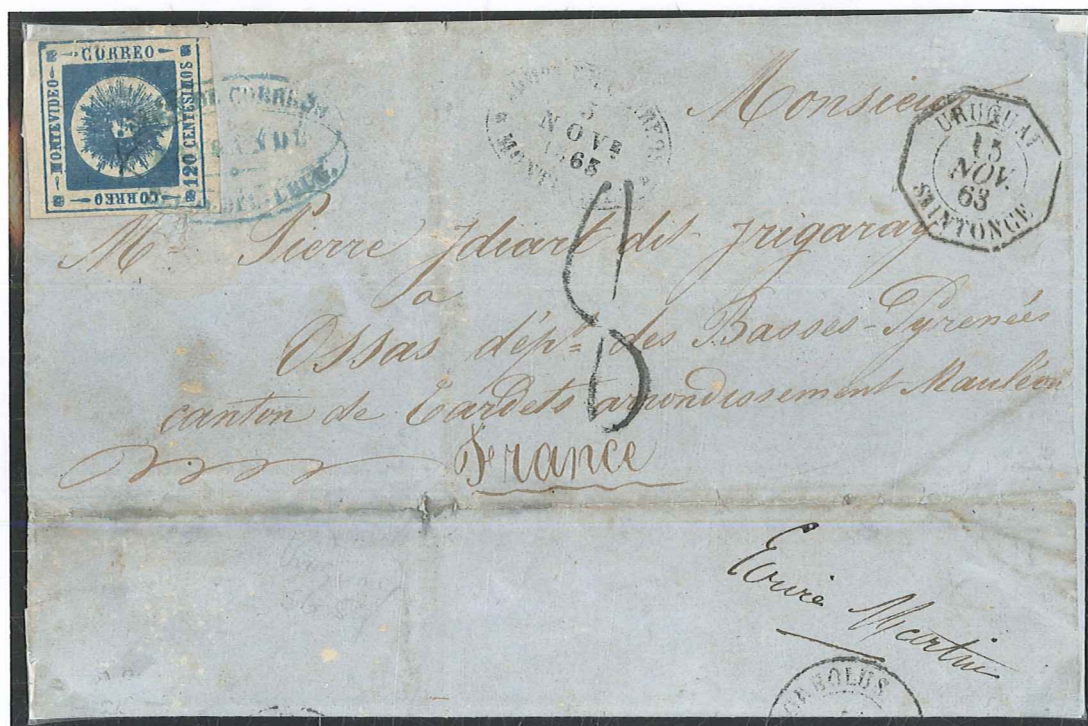 CORREO
MONTEVIDEO
120 CENTESIMOS
CORREO
DE CORREOS
NOVE
63
MONTEVIDEO
URUGUAY
15
NOV.
63
SAINTONGE
Monsieur
Mr Pierre Jdiart dit Jrigaray
a
Ossas dépt des Basses-Pyrenées
canton de Tardets arrondissement Mauléon
France
8
Martin